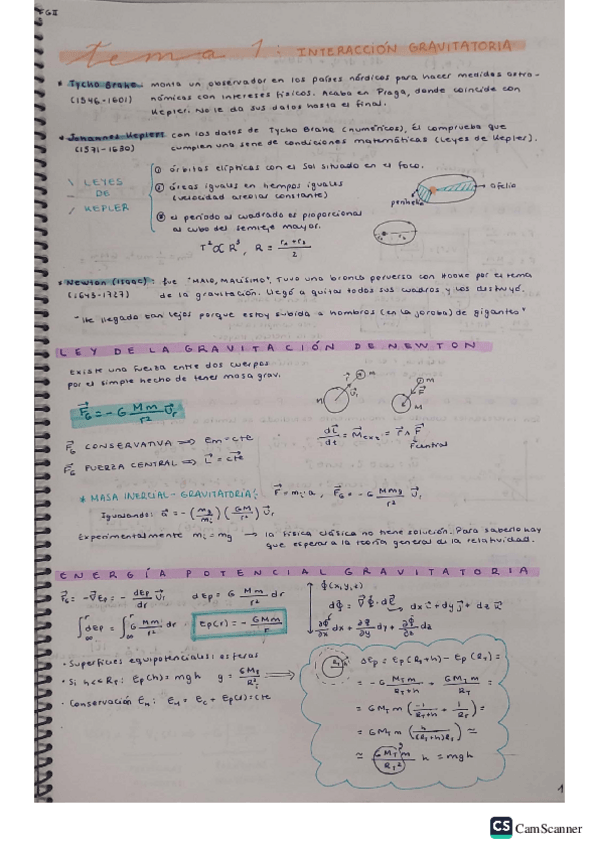 FGII
tema 1: INTERACCIÓN GRAVITATORIA
* Tycho Brahe: monta un observador en los países nórdicos para hacer medidas astro-
(1546-1601) nómicas con intereses físicos. Acaba en Praga, donde coincide con
Kepler. No le da sus datos hasta el final.
* Johannes Kepler: con los datos de Tycho Brahe (numéricos), él comprueba que
(1571-1630) cumplen una serie de condiciones matemáticas (Leyes de Kepler).
LEYES DE KEPLER
① órbitas elípticas con el Sol situado en el foco.
② áreas iguales en tiempos iguales
(velocidad areolar constante)
③ el período al cuadrado es proporcional
al cubo del semieje mayor.
perihelio
afelio
T² ∝ R³, R =
* Newton (Isaac): fue "MALO, MALÍSIMO", tuvo una bronca perversa con HOOKE por el tema
(1643-1727) de la gravitación. Llegó a quitar todos sus cuadros y los destruyó.
"He llegado tan lejos porque estoy subida a hombros (en la joroba) de gigantes"
LEY DE LA GRAVITACIÓN DE NEWTON
Existe una fuerza entre dos cuerpos
por el simple hecho de tener masa grav.
F⃗G = -G Mm/r² u⃗r
F⃗G CONSERVATIVA ⟹ Em = cte
F⃗G FUERZA CENTRAL ⟹ L⃗ = cte
dL⃗/dt = M⃗ext = r⃗ ∧ F⃗
Fcentral
* MASA INERCIAL - GRAVITATORIA: F⃗ = mi·a, F⃗G = -G Mmg/r² u⃗r
Igualando: a⃗ = -(mg/mi)(GM/r²) u⃗r
Experimentalmente mi = mg → la física clásica no tiene solución. Para saberlo hay
que esperar a la teoría general de la relatividad.
ENERGÍA POTENCIAL GRAVITATORIA
F⃗G = -∇⃗Ep = - dEp/dr u⃗r dEp = G Mm/r² dr
∫∞^r dEp = ∫∞^r G Mm/r² dr Ep(r) = - GMm/r
Φ(x,y,z)
dΦ = ∇⃗Φ·dr⃗
dx i⃗ + dy j⃗ + dz k⃗
∂Φ/∂x dx + ∂Φ/∂y dy + ∂Φ/∂z dz
· Superficies equipotenciales: esferas
· Si h<<RT: Ep(h) = mgh g = GMT/RT² ⟹
· Conservación Em: Em = Ec + Ep(r) = cte
RT
ΔEp = Ep(RT+h) - Ep(RT) =
= -G MTm/(RT+h) + GMTm/RT =
= GMTm (-1/(RT+h) + 1/RT) =
= GMTm (h/((RT+h)RT)) ≃
≃ GMTm/RT² h = mgh
1
CS CamScanner